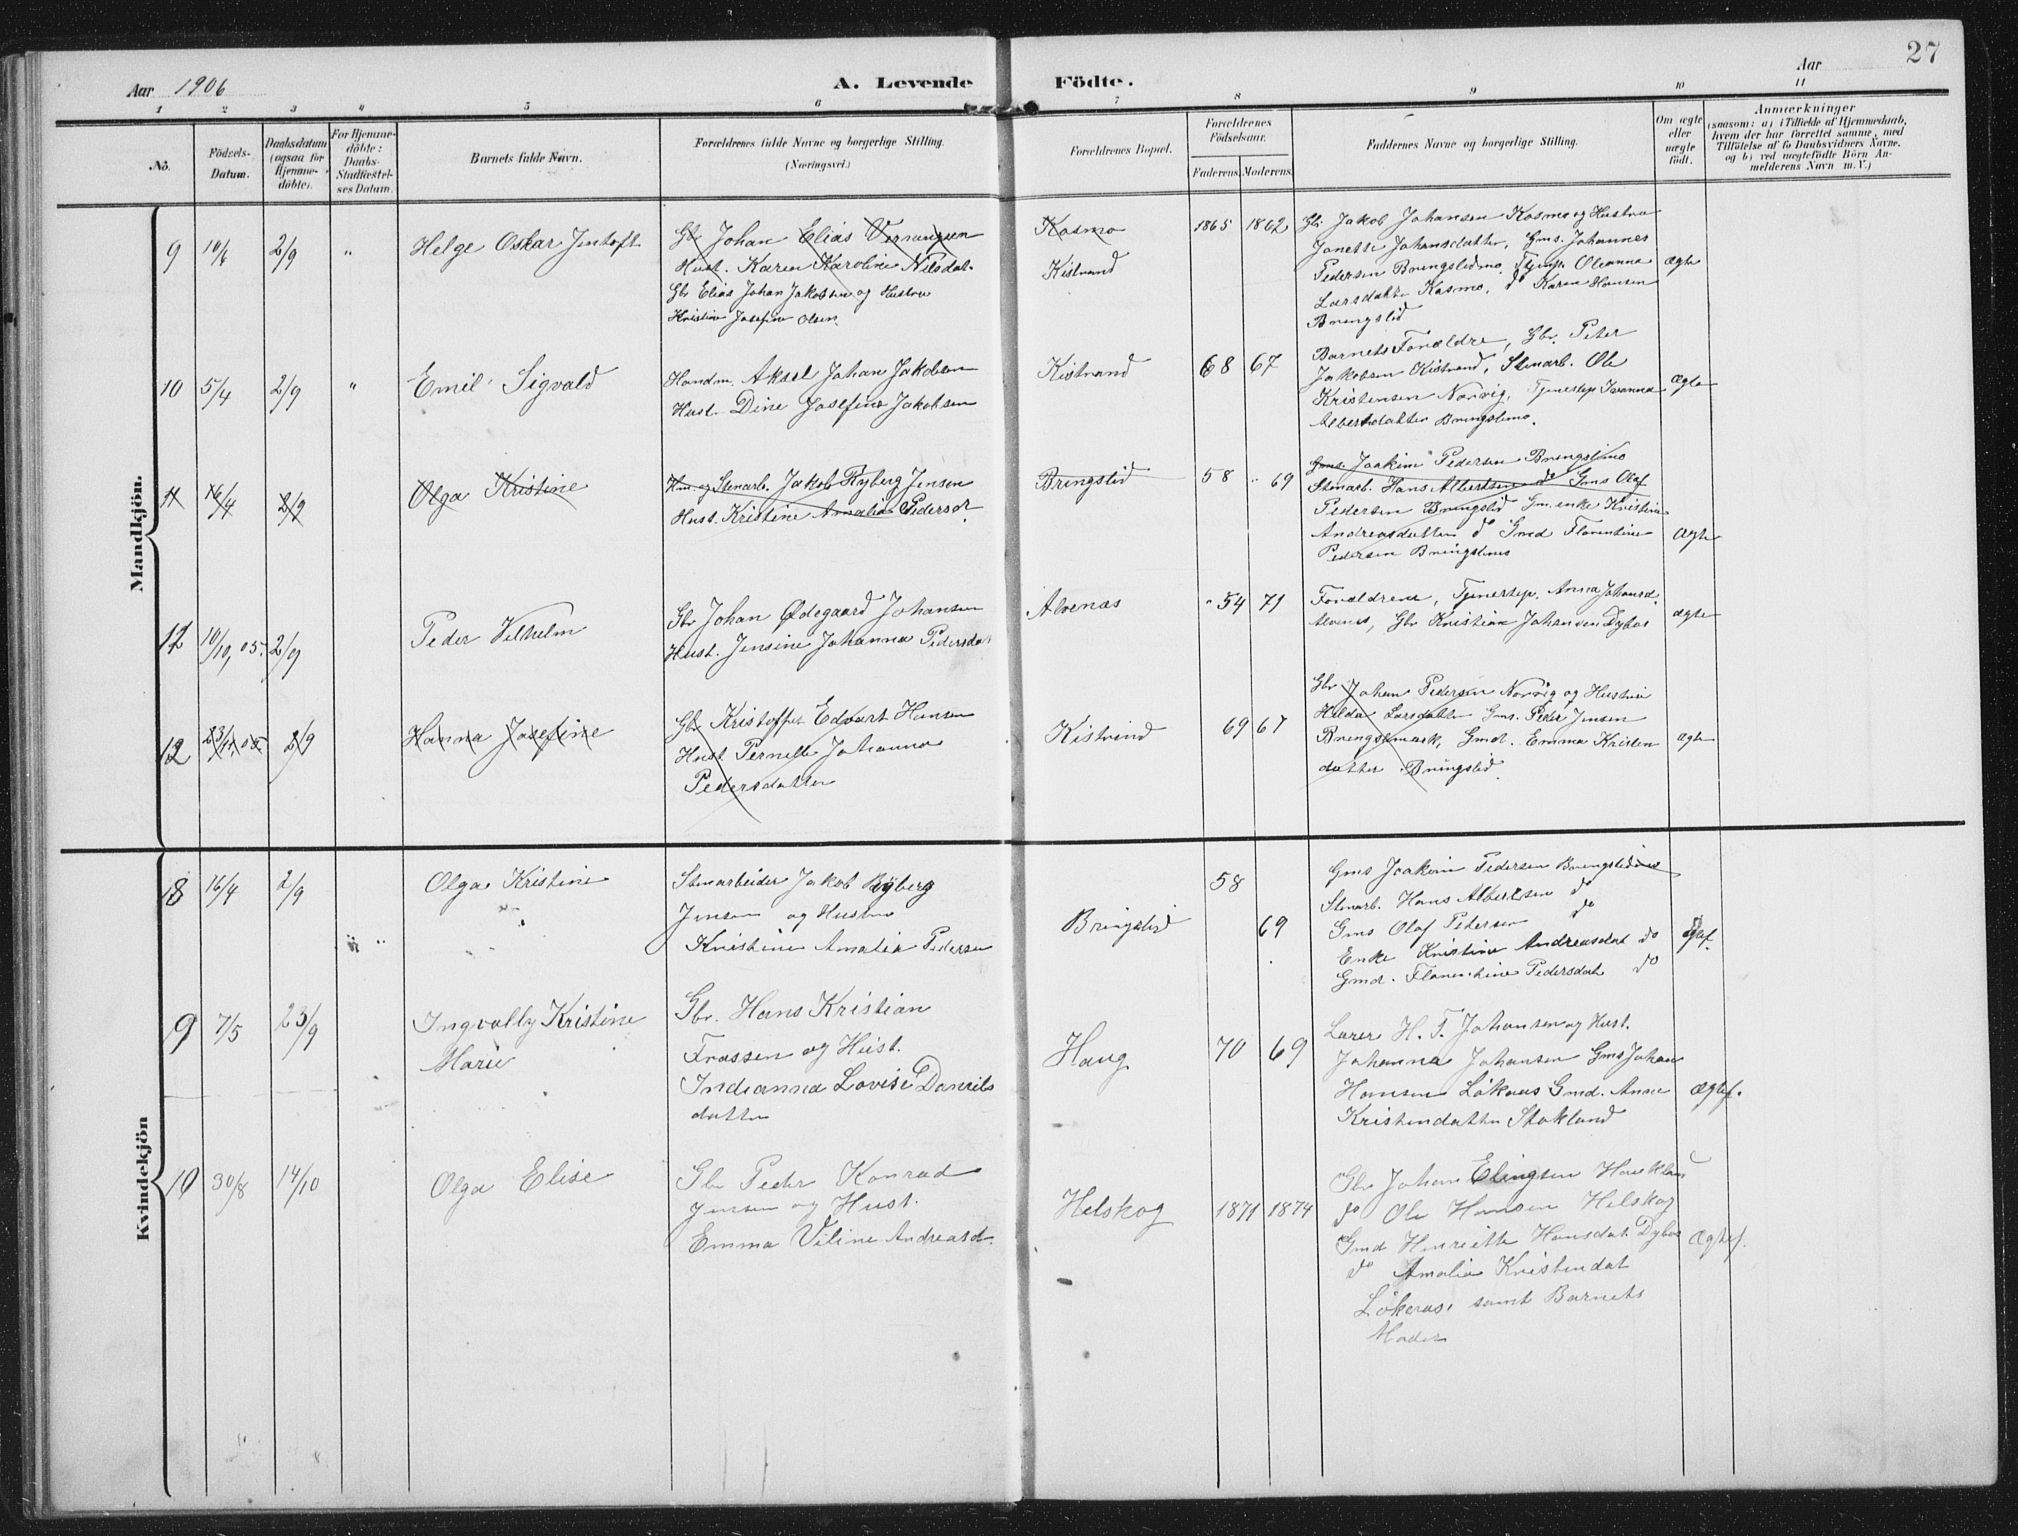 27
Aar 1906
A. Levende Födte.
Aar
1 2 3 4 5 6 7 8 9 10 11
No.
Födsels-
Datum.
Daabsdatum
(ogsaa for
Hjemme-
döbte).
For Hjemme-
döbte:
Daabs-
Stadfæstel-
ses Datum.
Barnets fulde Navn.
Forældrenes fulde Navne og borgerlige Stilling.
(Næringsvei.)
Forældrenes Bopæl.
Forældrenes
Födselsaar.
Faderens. Moderens.
Faddernes Navne og borgerlige Stilling.
Om ægte
eller
uægte
født.
Anmærkninger
(saasom: a) i Tilfælde af Hjemmedaab,
hvem der har forrettet samme, med
Tilföielse af to Daabsvidners Navne,
og b) ved uægtefödte Börn An-
melderens Navn m. V.)
Mandkjön.
9 10/6 2/9 " Helge Oskar Jentoft
Gbr Johan Elias
Hust. Karen Karoline Nilsdat.
Gbr Elias Johan Jakobsen og Hustru
Kristine Josefine Olsen
Kosmo
Kistrand
1865 1862
Gbr Jakob Johansen Kosmo og Hustru
Janette Johansdatter, Gms. Johannes
Pedersen Bringslidmo, Tjenp. Oleanna
Larsdatter Kosmo, do Karen Hansen
Bringslid
ægte
10 5/4 2/9 " Emil Sigvald
Handm. Aksel Johan Jakobsen
Hust. Dine Josefine Jakobsen
Kistrand
68 67
Barnets Forældre, Gbr. Peter
Jakobsen Kistrand, Stenarb. Ole
Kristensen Norvig, Tjenestep
Albertsdatter Bringslimo.
ægte
11 16/4 2/9 Olga Kristine
Hm. og Stenarb. Jakob Ryberg Jensen
Hust. Kristine Amalie Pedersd.
Bringslid
58 69
Gms. Joakim Pedersen Bringslimo
Stenarb. Hans Albertsen do Gms Olaf
Pedersen Bringslid Gm. enke Kristine
Andreasdatter do Gmd Florentine
Pedersen Bringslimo
ægte
12 10/10, 05. 2/9 Peder Vilhelm
Gbr Johan Ødegaard Johansen
Hust. Jensine Johanna Pedersdat
Alvenæs
54 71
Forældrene, Tjenestep. Anna Johansd.
Alvenes, Gbr Kristian Johansen Dybos
ægte
12 23/11, 05 2/9 Hanna Josefine
Gbr Kristoffer Edvart Hansen
Hust Pernille Johanna
Pedersdatter
Kistrand
69 67
Gbr Johan Pedersen Norvig og Hustru
Hilda Larsdatter Gms. Peder Jensen
Bringslimark, Gmd. Emma Kristen
datter Bringslid
ægte
Kvindekjön
8 16/4 2/9 Olga Kristine
Stenarbeider Jakob Ryberg
Jensen og Hustru
Kristine Amalia Pedersen
Bringslid
58
69
Gms Joakim Pedersen Bringslidmo
Stenarb. Hans Albertsen do
Gms Olaf Pedersen do
Enke Kristine Andreasdat do
Gmd. Florentine Pedersdat do
Ægtef.
9 7/5 23/9 Ingvally Kristine
Marie
Gbr. Hans Kristian
Frassen og Hust.
Indianna Lovise Danrils
datter
Haug
70 69
Lærer H. F. Johansen og Hust.
Johanna Johansen Gms Johan
Hansen Løkaas Gmd. Anna
Kristendatter Stokland
Ægtef.
10 30/8 14/10 Olga Elise
Gbr Peder Konrad
Jensen og Hust.
Emma Viline Andreasd.
Helskog
1871 1874
Gbr Johan Elingsen Haukland
do Ole Hansen Helskog
Gmd Henriette Hansdat. Dybos
do Amalia Kristendat
Løkeras, samt Barnets
Moder
Ægtef.